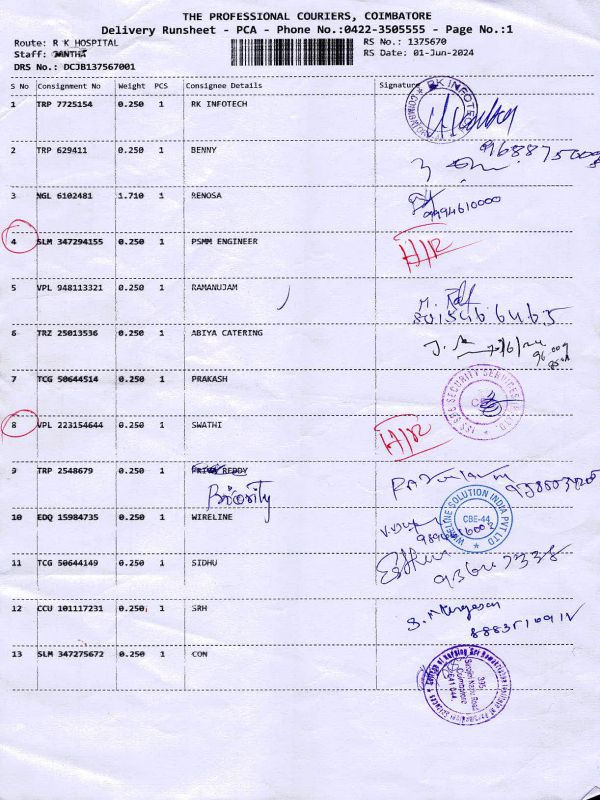 THE PROFESSIONAL COURIERS, COIMBATORE
Delivery Runsheet - PCA - Phone No.:0422-3505555 - Page No.:1
Route: R K HOSPITAL RS No.: 1375670
Staff: RS Date: 01-Jun-2024
DRS No.: DCJB137567001
S No Consignment No Weight PCS Consignee Details Signature
1 TRP 7725154 0.250 1 RK INFOTECH
RK INFOTEC
2 TRP 629411 0.250 1 BENNY
3 NGL 6102481 1.710 1 RENOSA
9994610000
4 SLM 347294155 0.250 1 PSMM ENGINEER
5 VPL 948113321 0.250 1 RAMANUJAM
8015466465
6 TRZ 25013536 0.250 1 ABIYA CATERING
7 TCG 50644514 0.250 1 PRAKASH
SECURITY SERVICES
8 VPL 223154644 0.250 1 SWATHI
9 TRP 2548679 0.250 1 PRIYA REDDY
Briority
10 EDQ 15984735 0.250 1 WIRELINE
WIRELINE SOLUTION INDIA PVT LTD
CBE-44
11 TCG 50644149 0.250 1 SIDHU
12 CCU 101117231 0.250 1 SRH
13 SLM 347275672 0.250 1 CON
395
Coimbatore
641 044